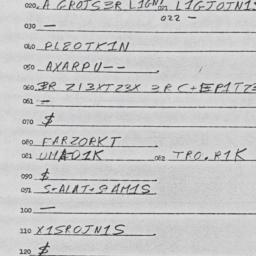 020. A GROTS3R L1GN1 021 L1GJOTN1S
022 —
030 —
040 PL8OTK1N
050 AXARPU--
060. 3R 213XT23X 3RC+EP1T23
061 —
070 $
080 FARZORKT
081 UHAD1K 082 TRO.R1K
090 $
091 S+ALAT+8AM1S
100 —
110 X1SROJN1S
120 $